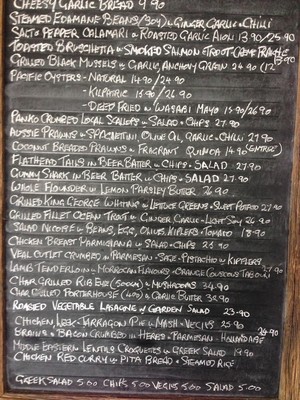 CHEESY GARLIC BREAD 9.90
STEAMED EDAMAME BEANS (SOY) w GINGER GARLIC + CHILLI
SALT + PEPPER CALAMARI w ROASTED GARLIC AIOLI 13.90/25.90
TOASTED BRUSCHETTA w SMOKED SALMON TROUT CREME FRAICHE 13.90
GRILLED BLACK MUSSELS w GARLIC, ANCHOVY GRAIN 24.90
PACIFIC OYSTERS - NATURAL 14.90/24.90
- KILPATRIC 15.90/26.90
- DEEP FRIED w WASABI MAYO 15.90/26.90
PANKO CRUMBED LOCAL SCALLOPS w SALAD + CHIPS 27.90
AUSSIE PRAWNS w SPAGHETTINI, OLIVE OIL, GARLIC + CHILLI 27.90
COCONUT BREADED PRAWNS w FRAGRANT QUINOA 14.90 (ENTREE)
FLATHEAD TAILS IN BEER BATTER w CHIPS + SALAD 27.90
GUMMY SHARK IN BEER BATTER w CHIPS + SALAD 27.90
WHOLE FLOUNDER w LEMON PARSLEY BUTTER 26.90
GRILLED KING GEORGE WHITING w LETTUCE GREENS + SWEET POTATO 27.90
GRILLED FILLET OCEAN TROUT w GINGER GARLIC + LIGHT SOY 26.90
SALAD NICOISE w BEANS, EGG, OLIVES, KIPLERS + TOMATO 18.90
CHICKEN BREAST PARMIGIANA w SALAD + CHIPS 23.90
VEAL CUTLET CRUMBED w PARMESAN + SAGE + PISTACHIO w KIPFLERS 27.90
LAMB TENDERLOIN w MOROCCAN FLAVOURS + ORANGE COUSCOUS TABOULI
CHAR GRILLED RIB EYE (500gm) w MUSHROOMS 34.90
CHAR GRILLED PORTERHOUSE (400) w GARLIC BUTTER 32.90
ROASED VEGETABLE LASAGNE w GARDEN SALAD 23.90
CHICKEN LEEK + TARRAGON PIE w MASH + VEGIES 25.90
BRAINS + BACON CRUMBED IN HERBS + PARMESAN + HOLLANDAISE 26.90
MIDDLE EASTERN LENTIL CROQUETTES w GREEK SALAD 19.90
CHICKEN RED CURRY w PITA BREAD + STEAMED RICE
GREEK SALAD 5.00 CHIPS 5.00 VEGIES 5.00 SALAD 5.00